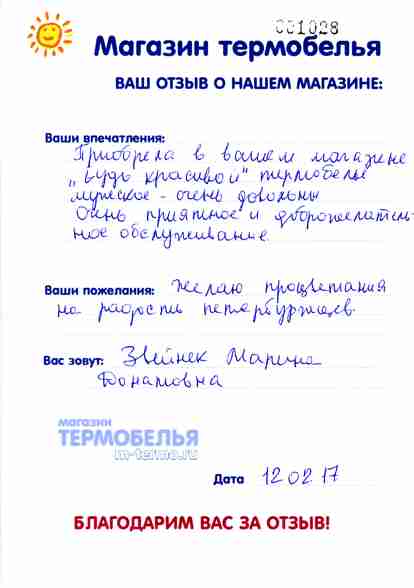 001028
Магазин термобелья
ВАШ ОТЗЫВ О НАШЕМ МАГАЗИНЕ:
Ваши впечатления:
Приобрела в вашем магазине
„Будь красивой" термобелье
мужское - очень довольны
Очень приятное и доброжелатель-
ное обслуживание
Ваши пожелания: Желаю процветания
на радость петербуржцев
Вас зовут: Звейнек Марина
Донатовна
магазин
ТЕРМОБЕЛЬЯ
m-termo.ru
Дата 12 02 17
БЛАГОДАРИМ ВАС ЗА ОТЗЫВ!